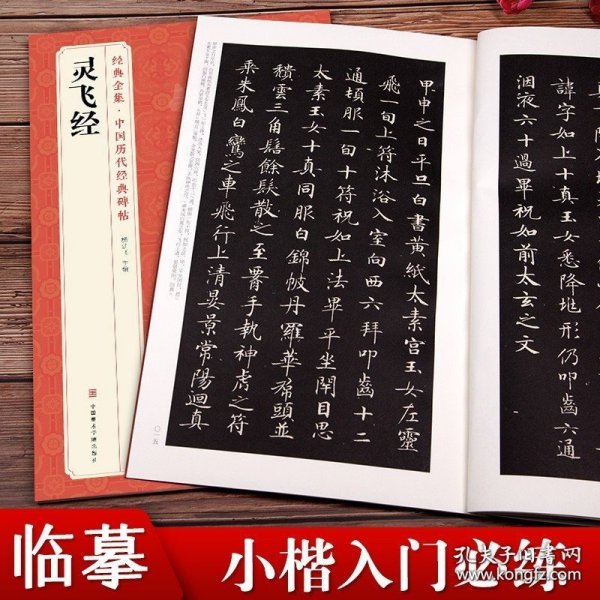 经典全集·中国历代经典碑帖
灵飞经
中国书店
甲申之日平旦白書黄紙太素宫玉女左靈
飛一旬上符沐浴入室向西六拜叩齒十二
通頓服一旬十符祝如上法畢平坐閉目思
太素玉女十真同服白錦帔丹羅華帬頭並
積雲三角髻餘髮散之至署手執神虎之符
乗朱鳳白鸞之車飛行上清晏景常陽迴真
〇一五
諱字如上十真玉女悉降地形仍叩齒六通
咽液六十過畢祝如前太玄之文
临摹
小楷入门必练
孔夫子旧书网
www.kongfz.com